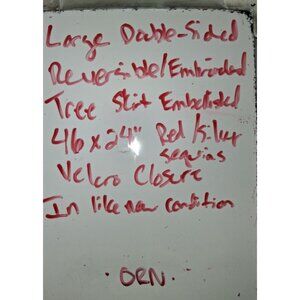 Large Double-Sided
Reversible/Embroidered
Tree Skirt Embellished
46 x 24" Red/Silver
sequins
Velcro Closure
In like new condition
· ORN ·